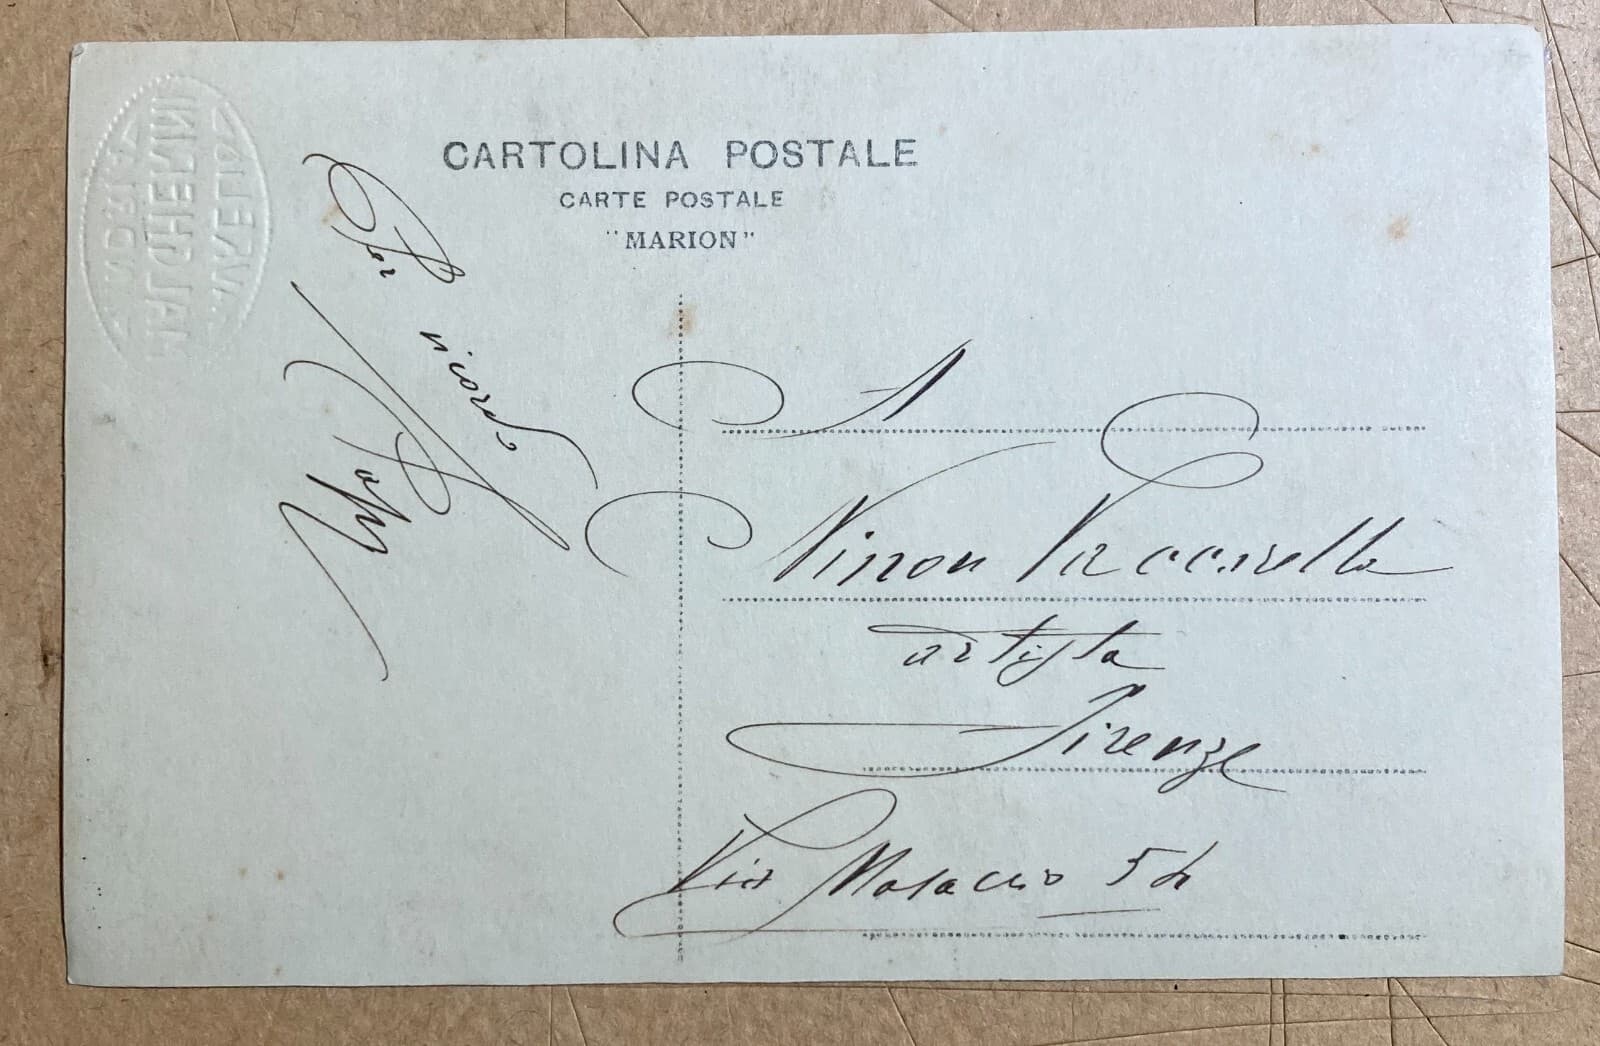 CARTOLINA POSTALE
CARTE POSTALE
"MARION"
Per ricordo
A
Ninon Vaccarella
artista
Firenze
Via Masaccio 54